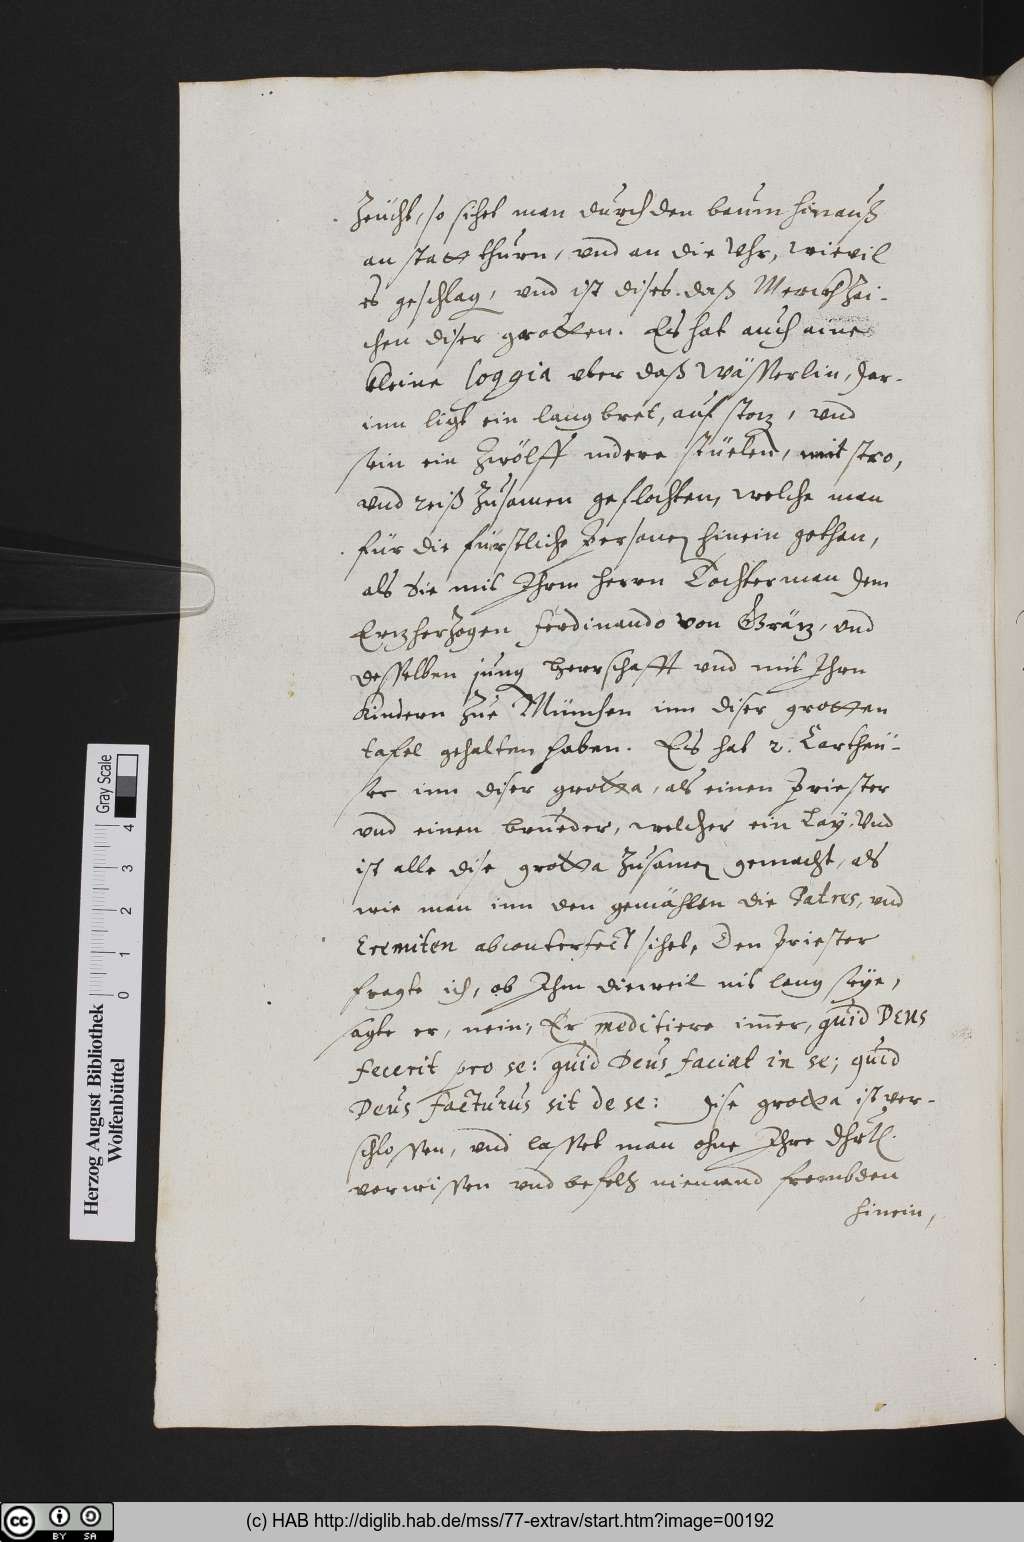 zeücht, so sihet man durch den baum hinauß
an statt thurn, vnd an die Vhr, wievil
es geschlag, vnd ist dises daß Merckhzai-
chen diser grotten. Es hat auch aine
kleine loggia vber daß wässerlin, dar-
inn ligt ein lang bret, auf storz, vnd
sein ein zwölff nidere stüelen, mit stro,
vnd reiß zusamen geflochten, welche man
für die fürstliche Personen hinein gethan,
als Sie mit Ihrm herrn Tochterman dem
Erzherzogen ferdinando von Grätz, vnd
desselben jung herrschafft vnd mit Ihrn
Kindern zue München inn diser grotten
tafel gehalten haben. Es hat 2. Cartheü-
ser inn diser grotta, als einen Priester
vnd einen brueder, welcher ein Lay. Vnd
ist alle dise grotta zusamen gemacht, als
wie man inn den gemählen die Patres, vnd
Eremiten abconterfect sihet, den Priester
fragte ich, ob Ihm dieweil nit lang seye,
sagte er, nein, Er meditiere imer, quid Deus
fecerit pro se: quid Deus faciat in se; quid
Deus facturus sit de se: dise grotta ist ver-
schlossen, vnd lasset man ohne Ihre Dhrtl.
vorwissen vnd befelch niemand frembden
hinein,
Gray Scale
4
3
2
1
0
Herzog August Bibliothek
Wolfenbüttel
cc BY SA
(c) HAB http://diglib.hab.de/mss/77-extrav/start.htm?image=00192